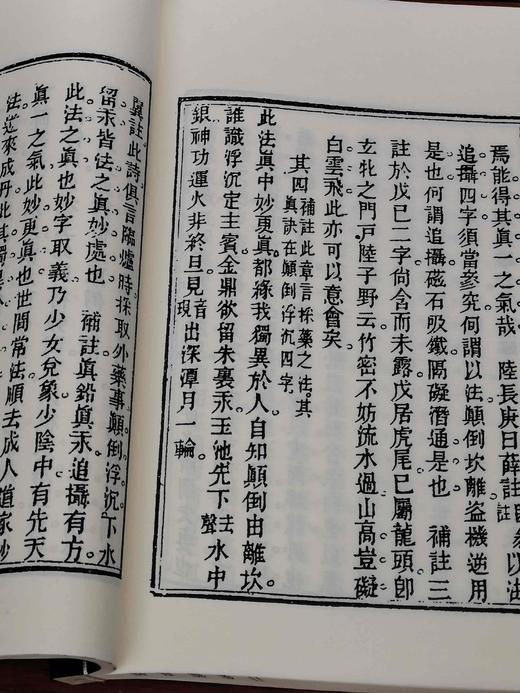 焉能得其眞一之氣哉　陸長庚曰薛註
追攝四字須當參究何謂以法顛倒坎離盜機逆用
是也何謂追攝磁石吸鐵隔礙潛通是也　補註三
註於戊巳二字尙含而未露戊居虎尾巳屬龍頭卽
玄牝之門戶陸子野云竹密不妨流水過山高豈礙
白雲飛此亦可以意會矣
其四　補註此章言採藥之法其眞訣在顛倒浮沉四字
此法眞中妙更眞都緣我獨異於人自知顛倒由離坎
誰識浮沉定主賓金鼎欲留朱裏汞玉池先下去聲水中
銀神功運火非終旦見音現出深潭月一輪
翼註此詩俱言臨爐時採取外藥事顛倒浮沉下水
留汞皆法之眞妙處也　補註眞鉛眞汞追攝有方
此法之眞也妙字取義乃少女兌象少陰中有先天
眞一之氣此妙更眞也世間常法順去成人道家妙
法逆來成丹此其獨異